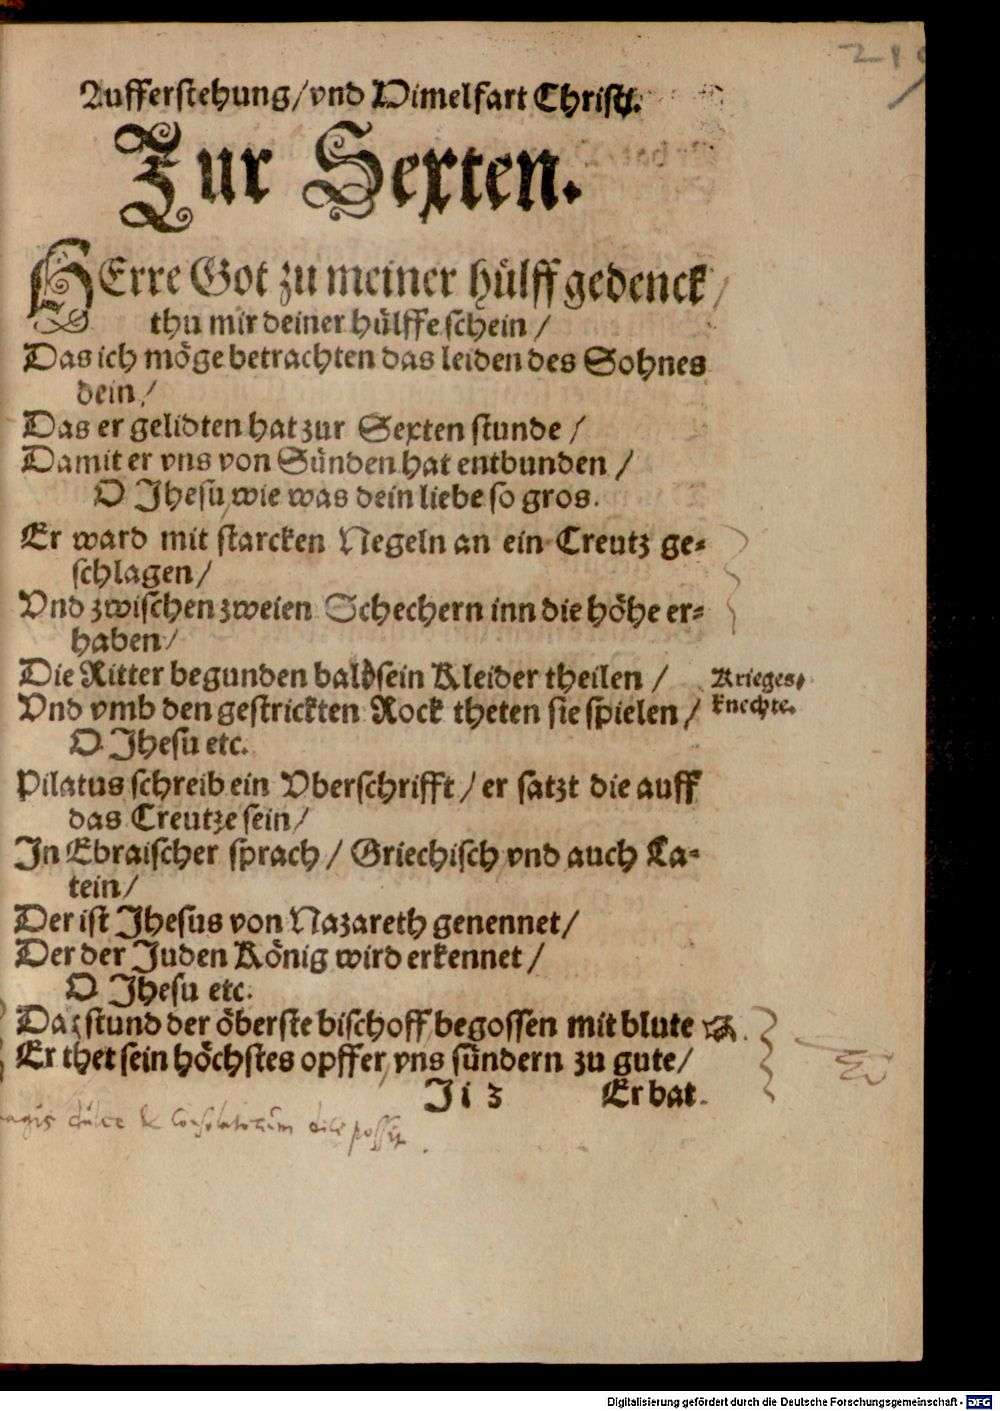 219
Aufferstehung/vnd Himelfart Christi.
Zur Sexten.
HErre Got zu meiner hülff gedenck/
thu mir deiner hülffe schein/
Das ich möge betrachten das leiden des Sohnes
dein/
Das er gelidten hat zur Sexten stunde/
Damit er vns von Sünden hat entbunden/
O Jhesu, wie was dein liebe so gros.
Er ward mit starcken Negeln an ein Creutz ge-
schlagen/
Vnd zwischen zweien Schechern inn die höhe er-
haben/
Die Ritter begunden bald sein Kleider theilen/
Krieges-
knechte.
Vnd vmb den gestrickten Rock theten sie spielen/
O Jhesu etc.
Pilatus schreib ein Vberschrifft/er satzt die auff
das Creutze sein/
In Ebraischer sprach/Griechisch vnd auch La-
tein/
Der ist Jhesus von Nazareth genennet/
Der der Juden König wird erkennet/
O Jhesu etc.
Da stund der öberste bischoff begossen mit blute
Er thet sein höchstes opffer vns sündern zu gute/
Ji 3 Er bat.
dulce & consolatorium dici possit.
Digitalisierung gefördert durch die Deutsche Forschungsgemeinschaft - DFG